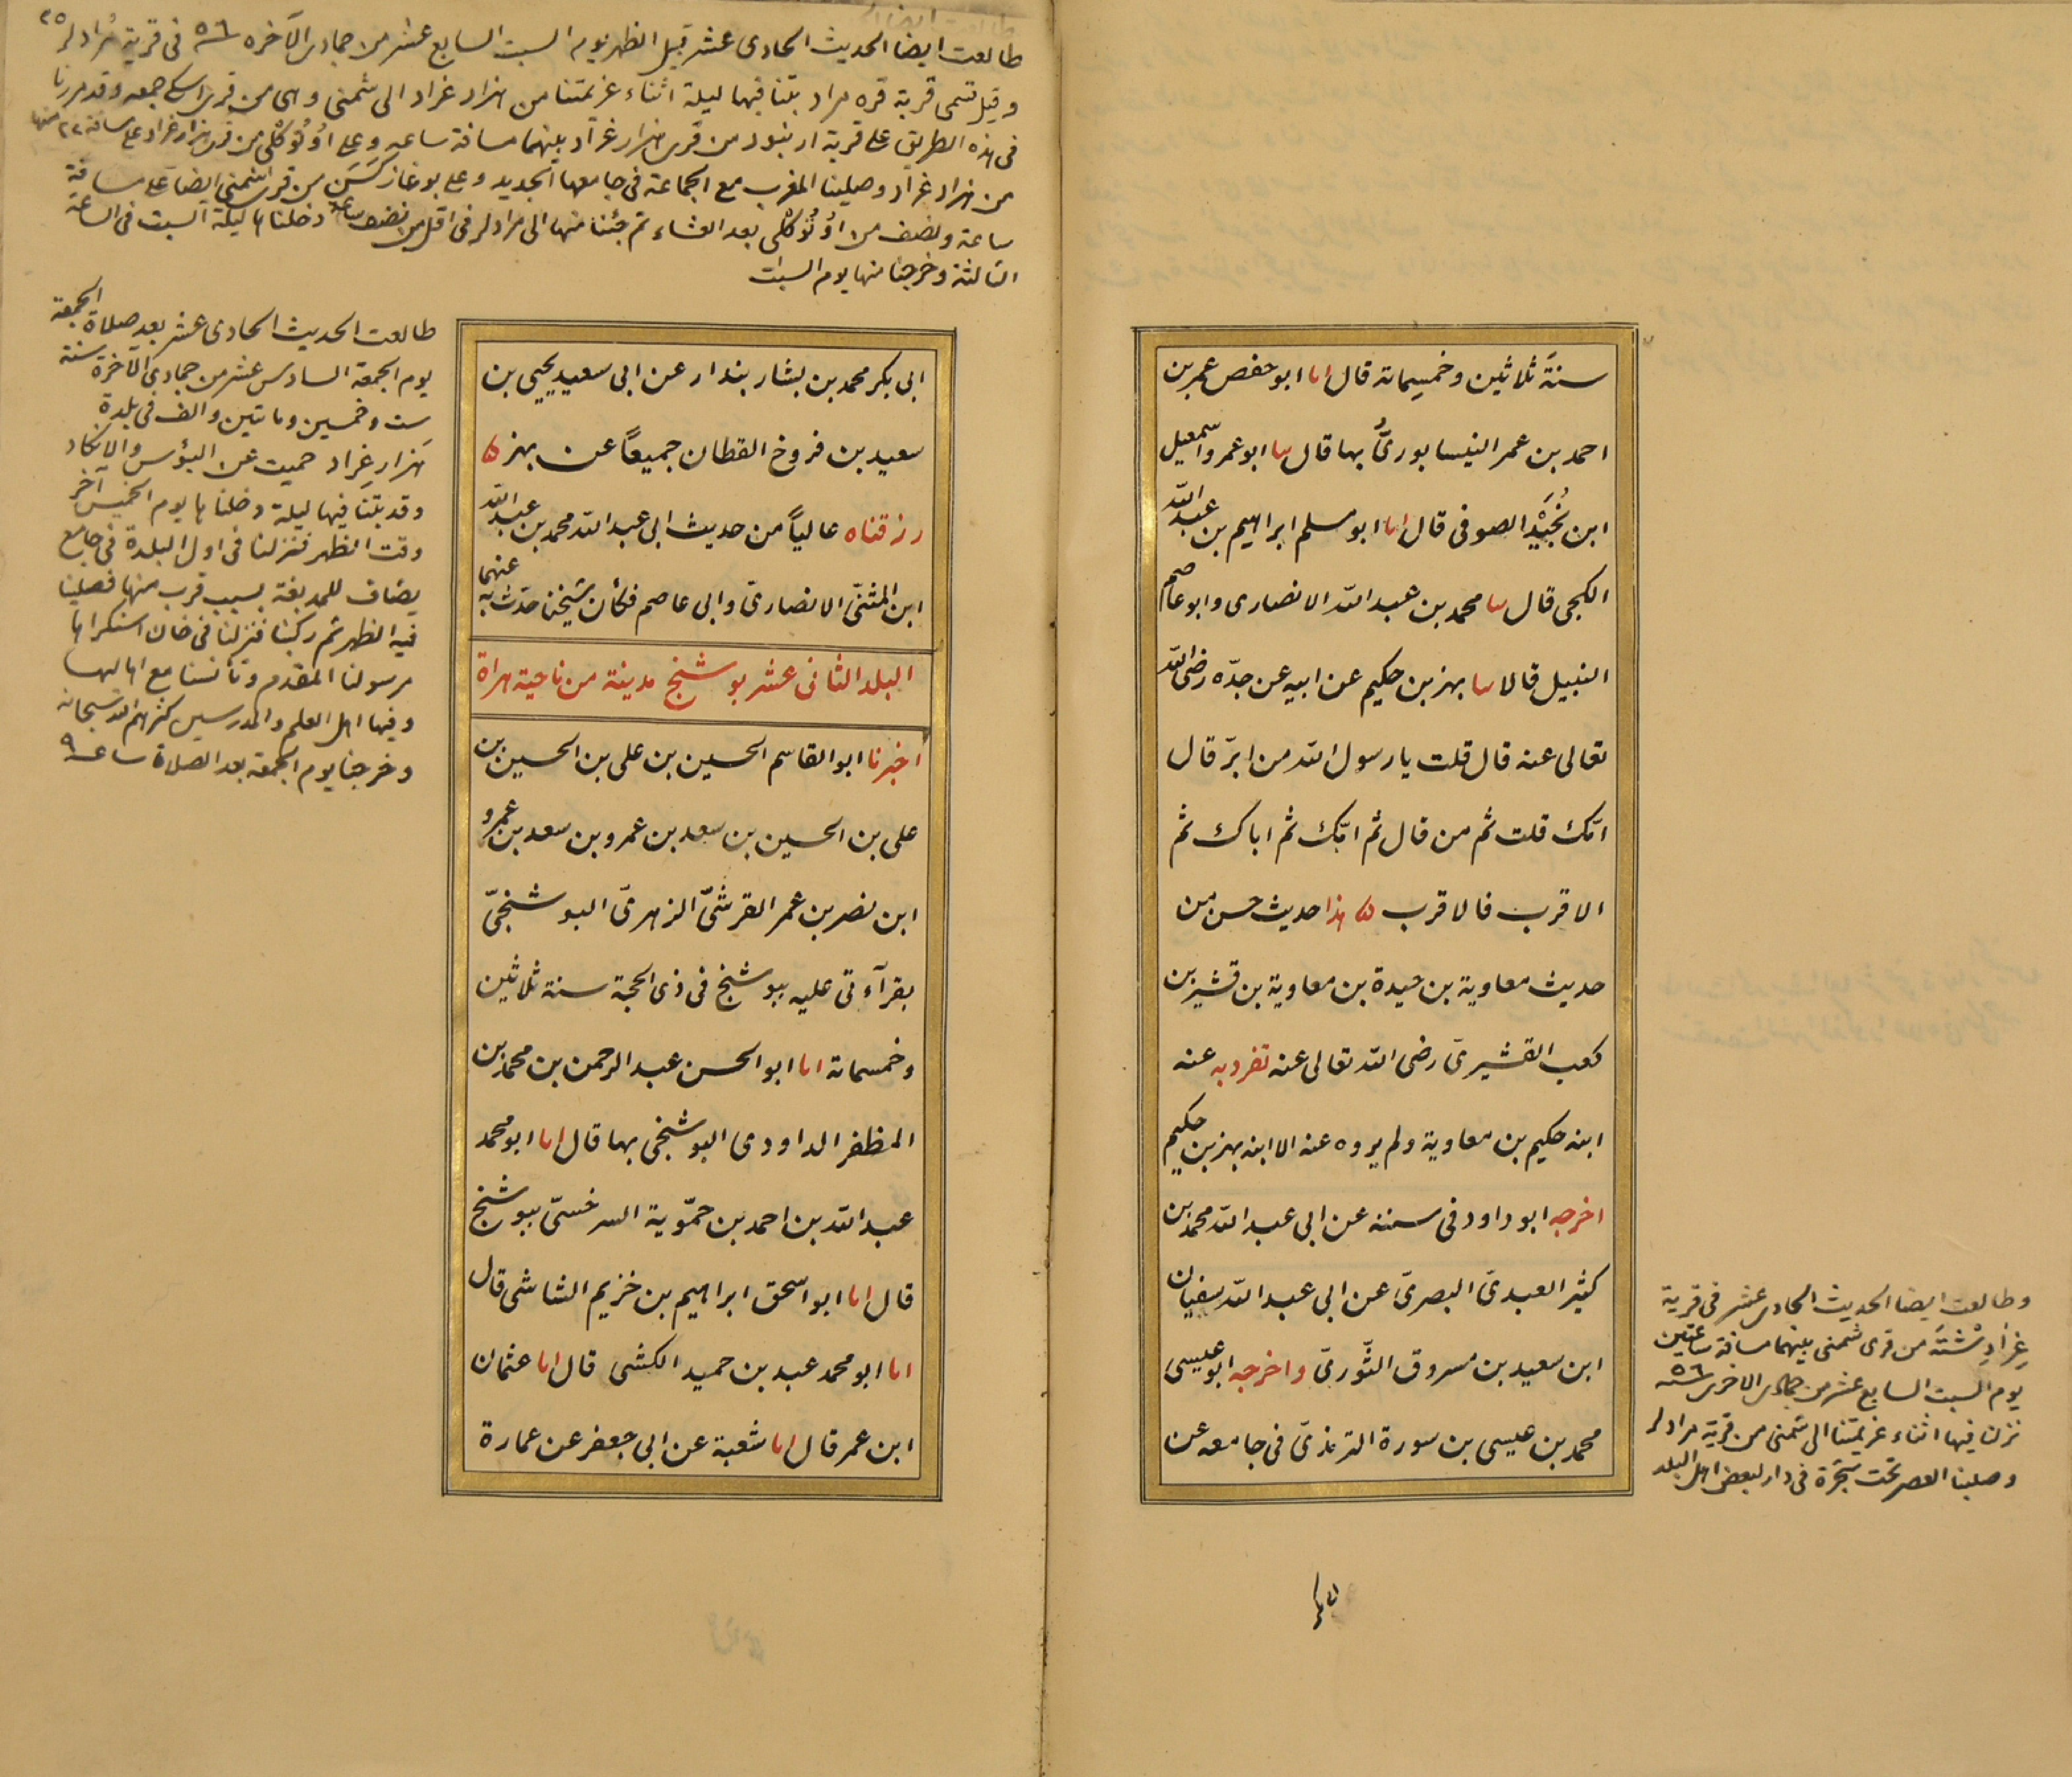 سنة ثلاثين وخمسماته قال انا ابو حفص عمر بن
احمد بن عمر النيسابورىّ بها قال سا ابو عمرو اسمعيل
ابن نُجَيْد الصوفى قال انا ابو مسلم ابراهيم بن عبد الله
الكجى قال سا محمد بن عبد الله الانصارى وابو عاصم
النبيل قالا سا بهز بن حكيم عن ابيه عن جدّه رضى الله
تعالى عنه قال قلت يا رسول الله من ابرّ قال
امّك قلت ثم من قال ثم امّك ثم اباك ثم
الاقرب فالاقرب هذا حديث حسن من
حديث معاوية بن حيدة بن معاوية بن قشير بن
كعب القشيرىّ رضى الله تعالى عنه تفرد به عنه
ابنه حكيم بن معاوية ولم يروه عنه الا ابنه بهز بن حكيم
اخرجه ابو داود فى سننه عن ابى عبد الله محمد بن
كثير العبدىّ البصرىّ عن ابى عبد الله سفيان
ابن سعيد بن مسروق الثّورىّ واخرجه ابو عيسى
محمد بن عيسى بن سورة الترمذىّ فى جامعه عن
وطالعت ايضا الحديث الحادى عشر فى قرية
من قرى شمنى بينهما مسافة ساعتين
يوم السبت السابع عشر من جمادى الاخرى سنة ٥٦
نزلنا فيها اثناء عزيمتنا الى شمنى من قرية مرادلر
وصلينا العصر تحت شجرة فى دار لبعض اهل البلد
طالعت ايضا الحديث الحادى عشر قبيل الظهر يوم السبت السابع عشر من جمادى الآخره سنة ٥٦ فى قرية مُرادلر
وقيل تسمى قرية قره مراد بتنا فيها ليلة اثناء عزيمتنا من هزار غراد الى شمنى وهى من قرى اسكى جمعه وقد مررنا
فى هذه الطريق على قرية من قرى هزار غراد بينهما مسافة ساعه وعلى من قرى هزار غراد على مسافة
من هزار غراد وصلينا المغرب مع الجماعة فى جامعها الجديد وعلى بوغاز من قرى شمنى ايضا على مسافة
ساعة ونصف من بعد العشاء ثم جئنا منها الى مرادلر فى اقل من نصف ساعه دخلناها ليلة السبت فى الساعة
الثالثة وخرجنا منها يوم السبت
طالعت الحديث الحادى عشر بعد صلاة الجمعة
يوم الجمعة السادس عشر من جمادى الآخرة سنة
ست وخمسين وماتين والف فى بلدة
هزار غراد حميت عن البؤس والانكاد
وقد بتنا فيها ليلة دخلناها يوم الخميس آخر
وقت الظهر فنزلنا فى اول البلدة فى جامع
يضاف للمدبغة بسبب قرب منها فصلينا
فيه الظهر ثم ركبنا فنزلنا فى خان استكراها
مرسولنا المقدم وتأنسنا مع اهاليها
وفيها اهل العلم والمدرسين كثرهم الله سبحانه
وخرجنا يوم الجمعة بعد الصلاة ساعة ٩
ابى بكر محمد بن بشار بندار عن ابى سعيد يحيى بن
سعيد بن فروخ القطان جميعًا عن بهز
رزقناه عاليًا من حديث ابى عبد الله محمد بن عبد الله
ابن المثنّى الانصارىّ وابى عاصم فكأن شيخنا حدّث به عنهما
البلد الثانى عشر بوشنج مدينة من ناحية هراة
اخبرنا ابو القاسم الحسين بن على بن الحسين بن
على بن الحسين بن سعد بن عمرو بن سعد بن عمرو
ابن نصر بن عمر القرشىّ الزهرىّ البوشنجىّ
بقرآءتى عليه ببوشنج فى ذى الحجة سنة ثلاثين
وخمسماته انا ابو الحسن عبد الرحمن بن محمد بن
المظفر الداودى البوشنجى بها قال انا ابو محمد
عبد الله بن احمد بن حمّوية السرخسىّ ببوشنج
قال انا ابو اسحق ابراهيم بن خزيم الشاشى قال
انا ابو محمد عبد بن حميد الكشى قال انا عثمان
ابن عمر قال انا شعبة عن ابى جعفر عن عمارة